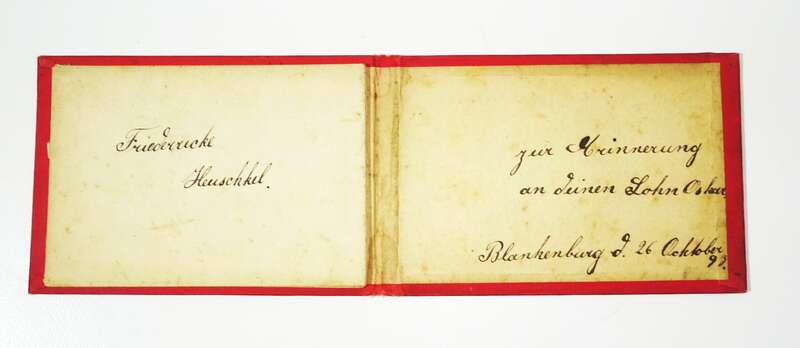 Friederricke
Heuschkel.
zur Erinnerung
an deinen Sohn Oskar
Blankenburg d. 26 Ocktober
99.